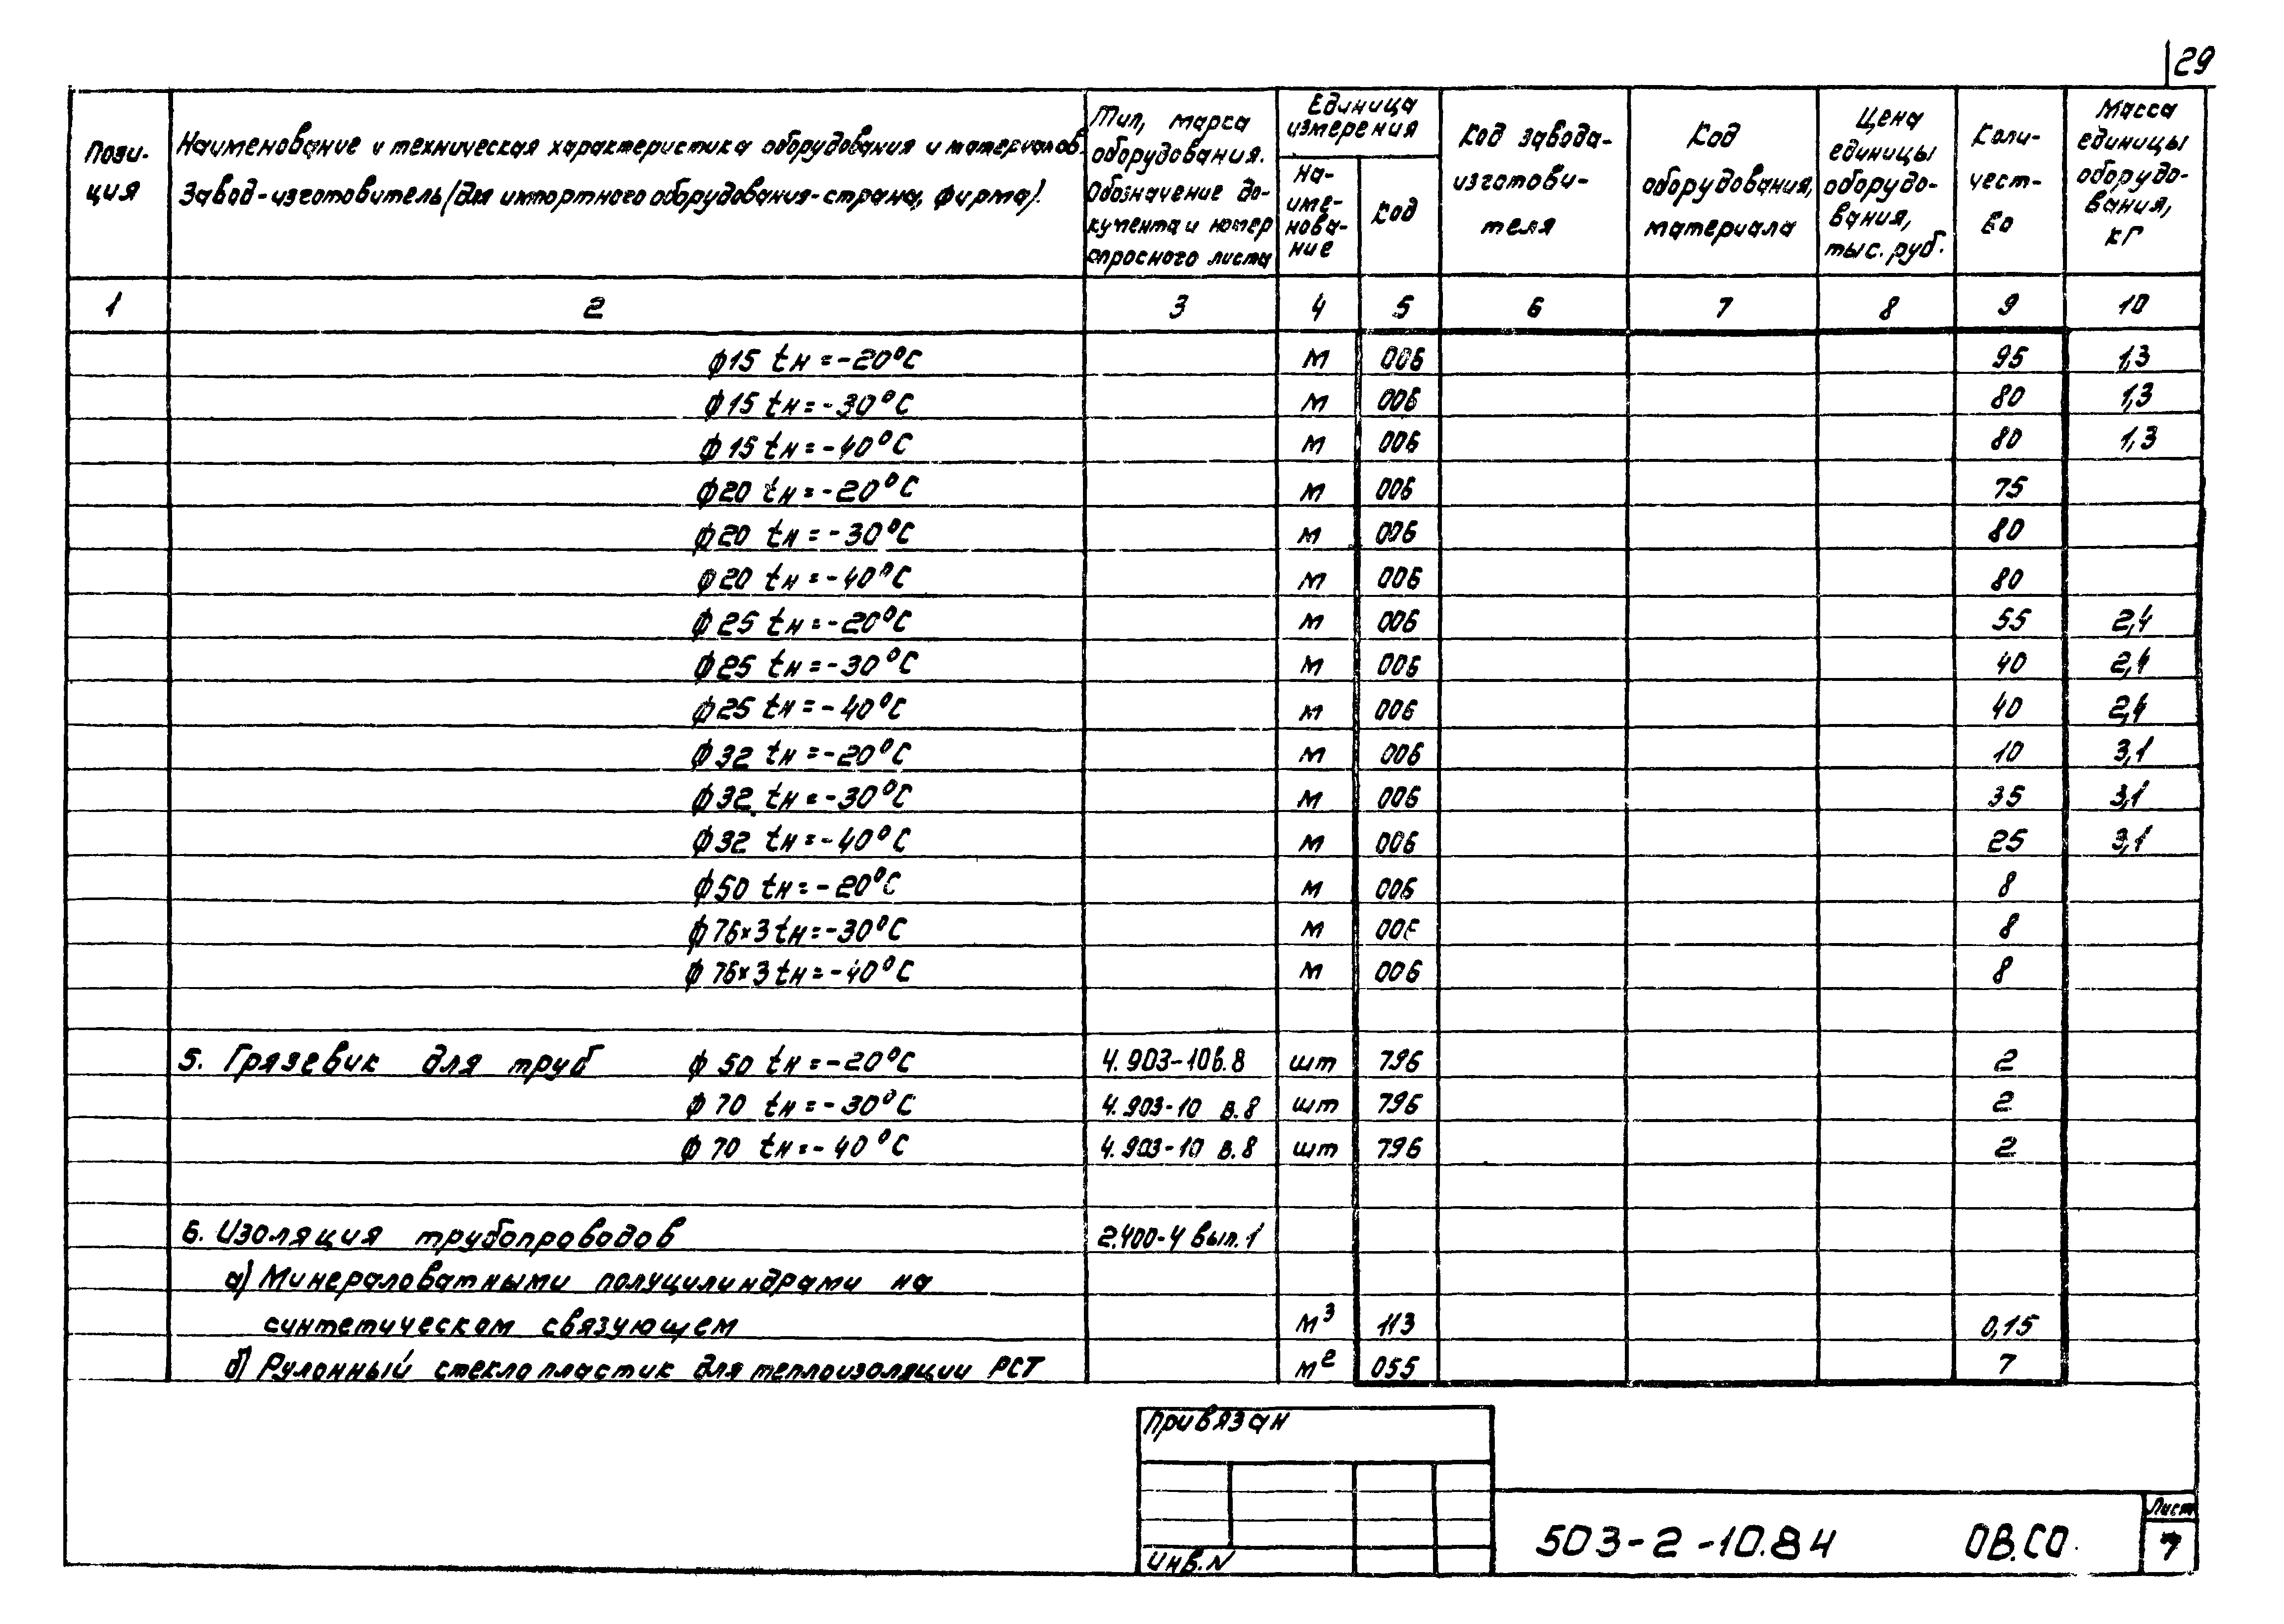 29
Пози-
ция
Наименование и техническая характеристика оборудования и материалов.
Завод-изготовитель (для импортного оборудования-страна, фирма).
Тип, марка
оборудования.
Обозначение до-
кумента и номер
опросного листа
Единица
измерения
На-
име-
нова-
ние
Код
Код завода-
изготови-
теля
Код
оборудования,
материала
Цена
единицы
оборудо-
вания,
тыс. руб.
Коли-
чест-
во
Масса
единицы
оборудо-
вания,
кг
1 2 3 4 5 6 7 8 9 10
ф15 tн=-20°С м 006 95 1,3
ф15 tн=-30°С м 006 80 1,3
ф15 tн=-40°С м 006 80 1,3
ф20 tн=-20°С м 006 75
ф20 tн=-30°С м 006 80
ф20 tн=-40°С м 006 80
ф25 tн=-20°С м 006 55 2,4
ф25 tн=-30°С м 006 40 2,4
ф25 tн=-40°С м 006 40 2,4
ф32 tн=-20°С м 006 10 3,1
ф32 tн=-30°С м 006 35 3,1
ф32 tн=-40°С м 006 25 3,1
ф50 tн=-20°С м 006 8
ф76×3 tн=-30°С м 006 8
ф76×3 tн=-40°С м 006 8
5. Грязевик для труб ф 50 tн=-20°С 4.903-10в.8 шт 796 2
ф 70 tн=-30°С 4.903-10 в.8 шт 796 2
ф 70 tн=-40°С 4.903-10 в.8 шт 796 2
6. Изоляция трубопроводов 2.400-4 вып.1
а) Минераловатными полуцилиндрами на
синтетическом связующем м³ 113 0,15
б) Рулонный стеклопластик для теплоизоляции РСТ м² 055 7
Привязан
Инв.N
503-2-10.84 ОВ.СО.
Лист
7